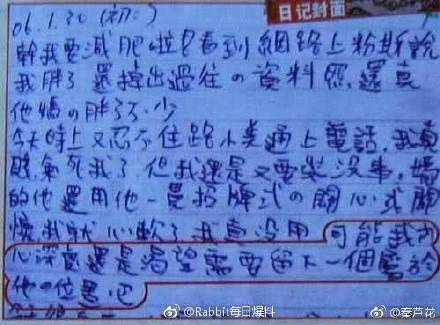 06.1.30 (初二)
日记封面
幹我要減肥啦只看到網路上粉斯說
我胖了還掉出過往の資料照還真
他媽の胖了不少
今天晚上又忍不住跟小美通上電話.我真
死我了但我還是又要裝沒事.媽
的他還用他一貫招牌式の關心或關
懷我就心軟了我真沒用可能我內
心深處還是渴望需要留下一個屬於
他の位置吧
@Rabbit每日爆料
@秦芦花